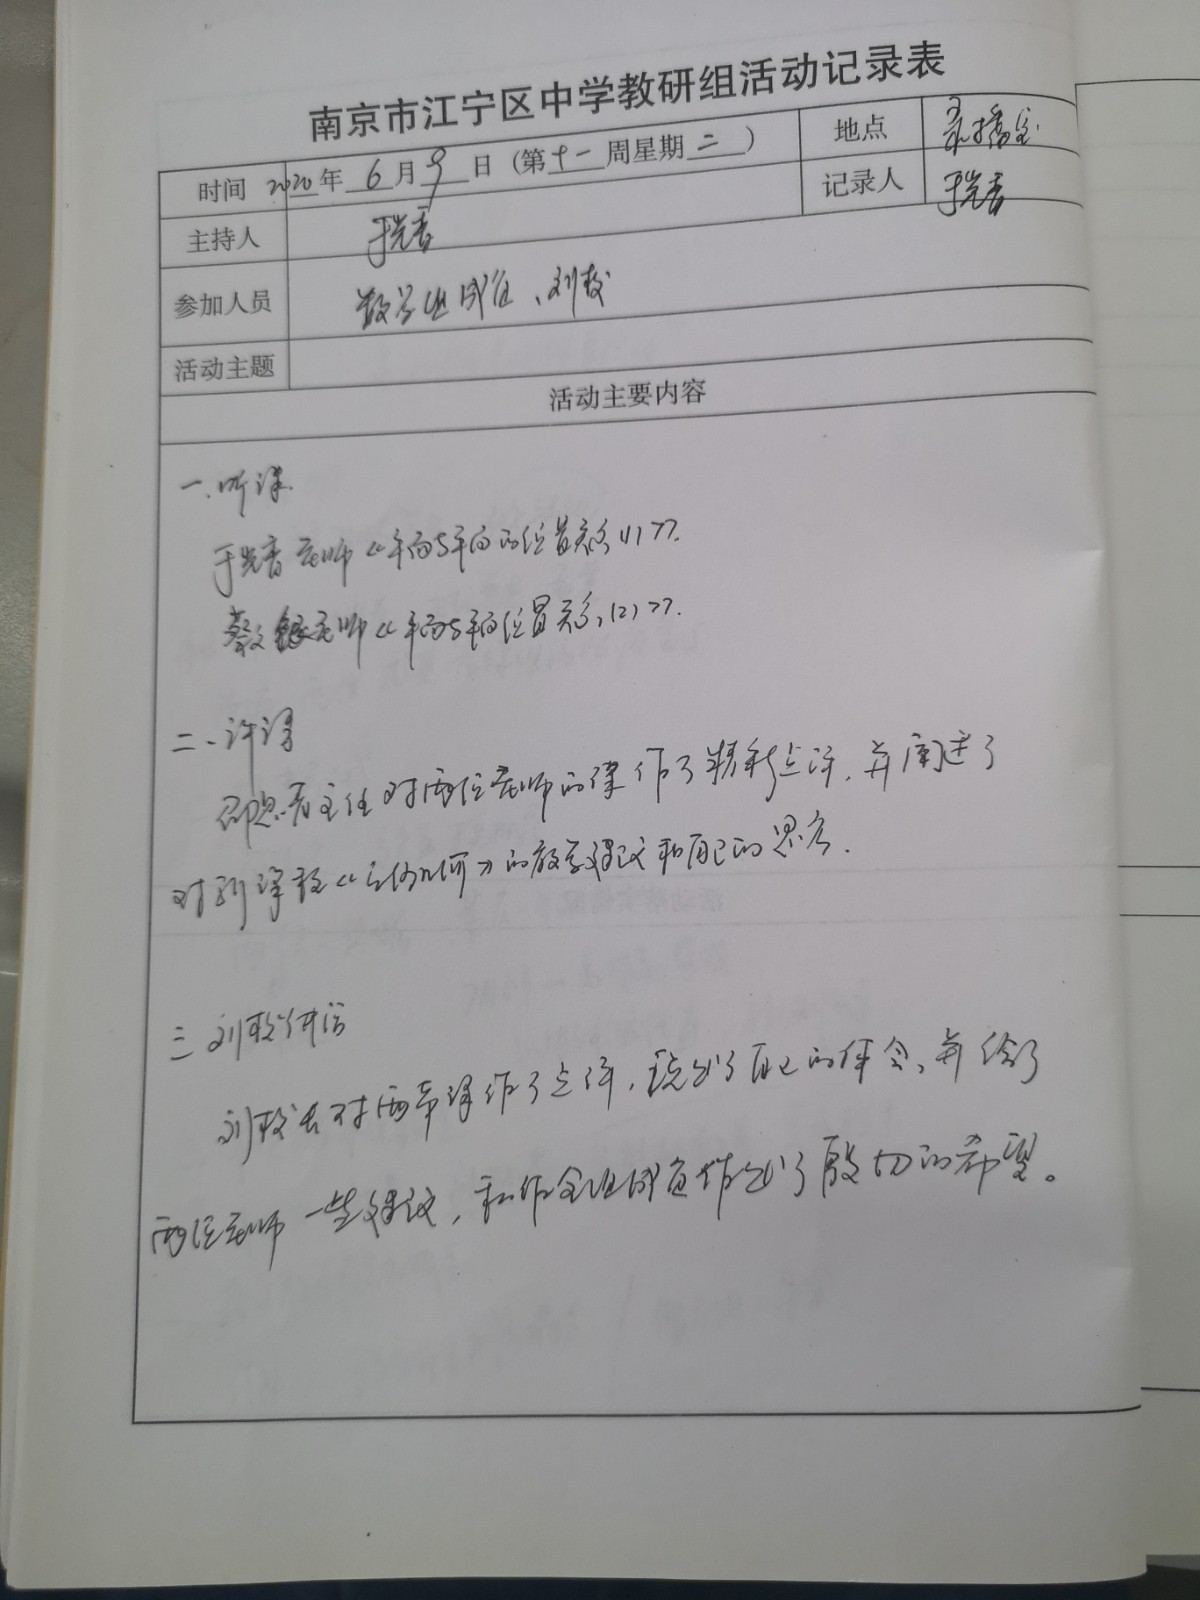 南京市江宁区中学教研组活动记录表
时间 2020年 6 月 9 日 (第十一周星期二) 地点 录播室
主持人 于光香 记录人 于光香
参加人员 数学组成员、刘校
活动主题
活动主要内容
一、听课
于光香老师《平面与平面的位置关系(1)》.
蔡文银老师《平面与平面的位置关系(2)》.
二、评课
主任对两位老师的课作了精彩点评，并阐述了
对新课程《立体几何》的教学建议和自己的思考.
三 刘校
刘校长对两节课作了点评，谈了自己的体会，并给了
两位老师一些建议，和作全组成员作出了殷切的希望。